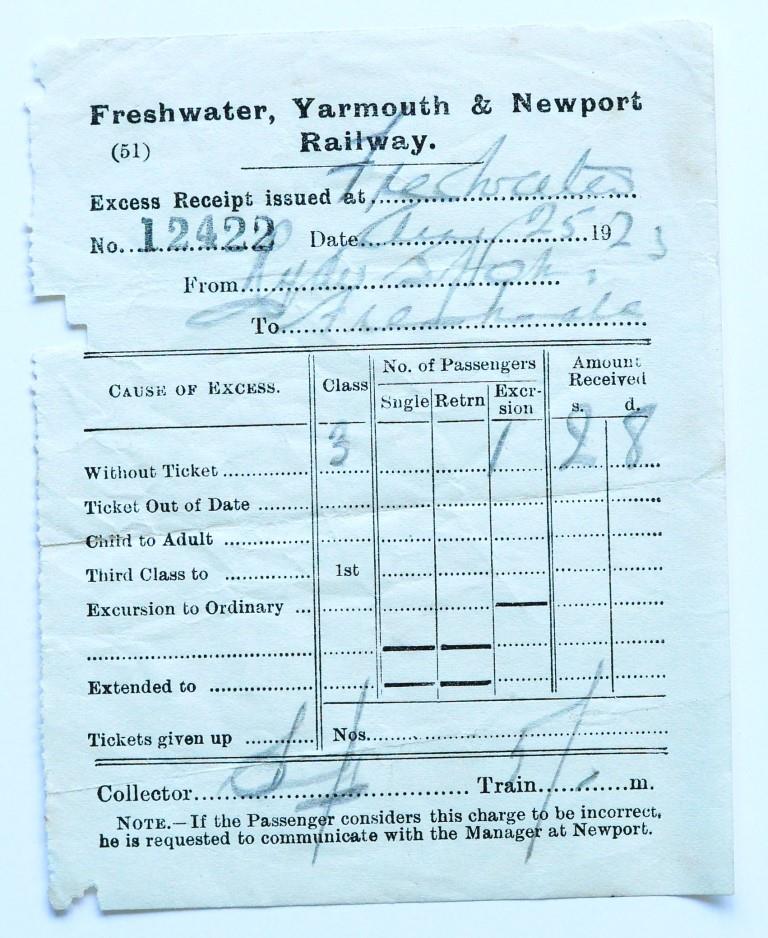 Freshwater, Yarmouth & Newport
Railway.
(51)
Excess Receipt issued at Freshwater
No. 12422 Date 25 1923
From
To
CAUSE OF EXCESS. Class No. of Passengers Amount Received
Sngle Retrn Excr-sion s. d.
Without Ticket 3 1 2 8
Ticket Out of Date
Child to Adult
Third Class to 1st
Excursion to Ordinary
Extended to
Tickets given up Nos.
Collector Train m.
NOTE.—If the Passenger considers this charge to be incorrect,
he is requested to communicate with the Manager at Newport.